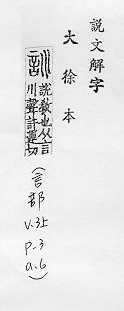 說文解字
大徐本
訓
說教也从言
川聲許運切
(言部
V.3上
p.3
a.6)